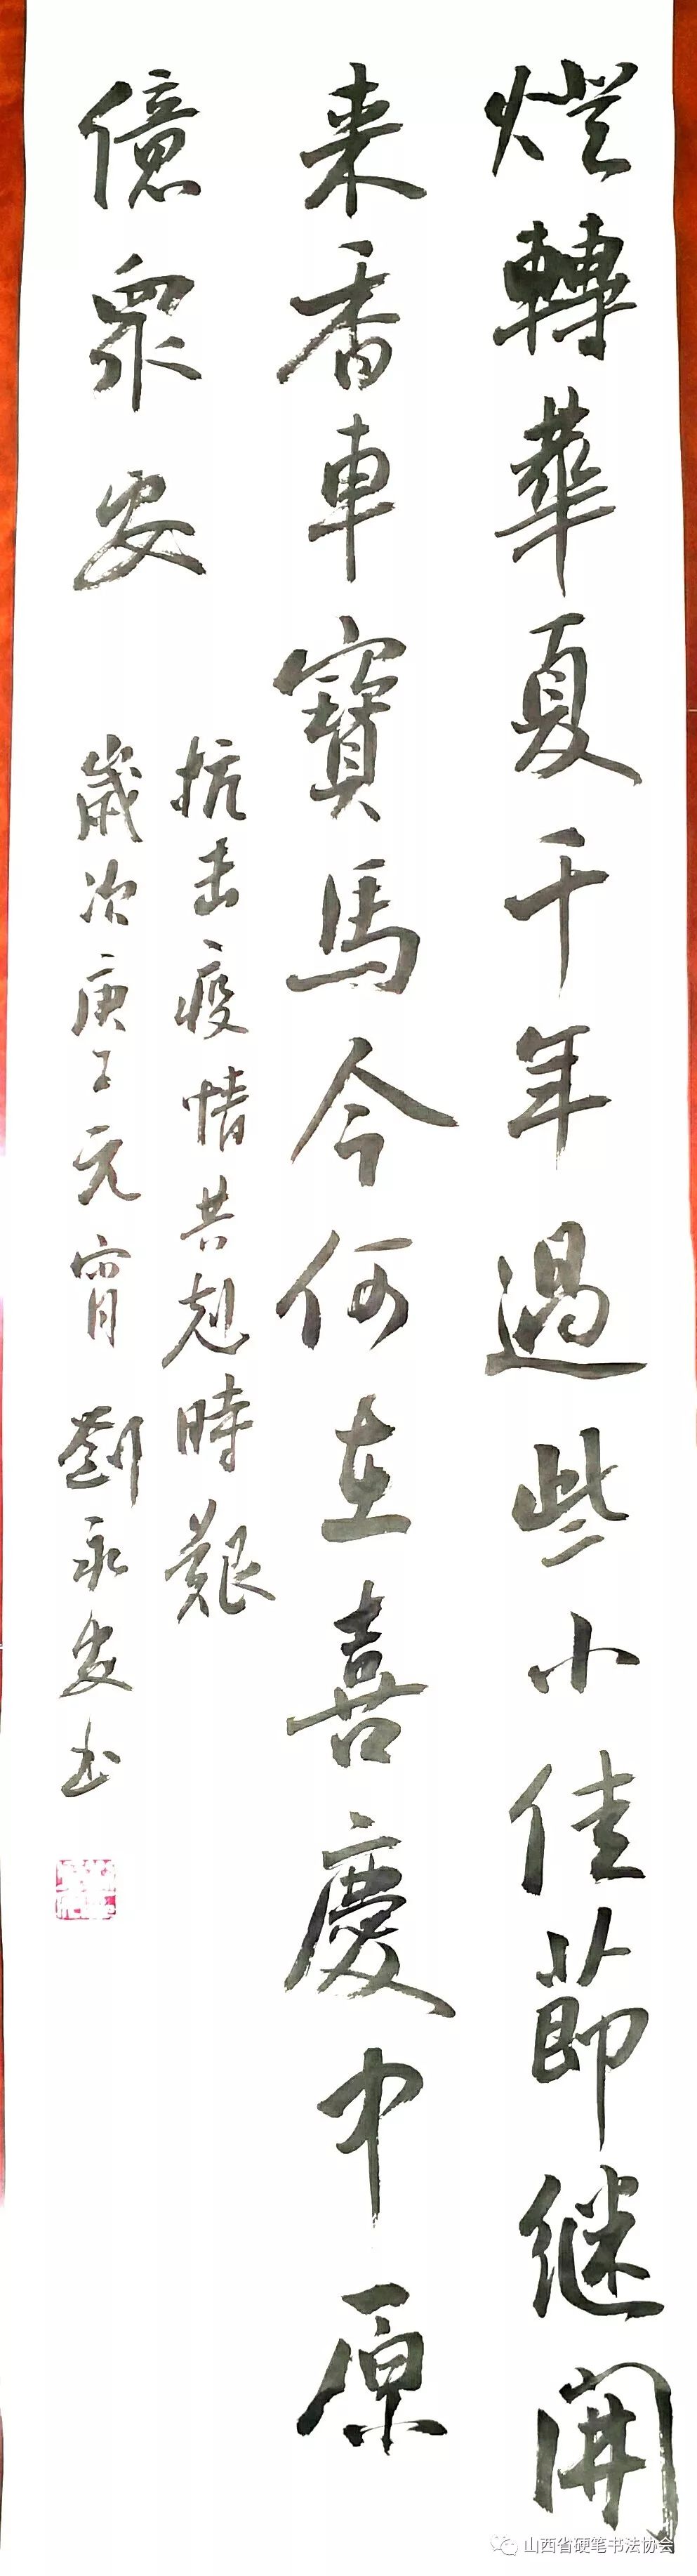 燈轉華夏千年過些小佳節継開
来香車寶馬今何在喜慶中原
億眾安
抗击疫情共剋時艱
歲次庚子元宵劉永安书
山西省硬笔书法协会